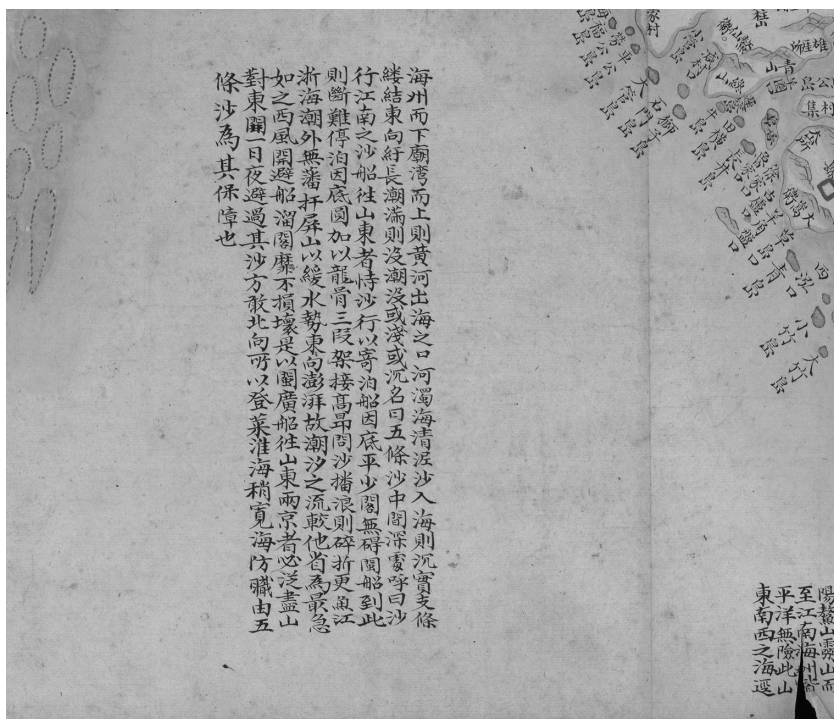 海州而下廟灣而上則黃河出海之口河濁海清泥沙入海則沉實支條
縷結東向紆長潮滿則没潮没或淺或沉名曰五條沙中間深處呼曰沙
行江南之沙船徃山東者恃沙行以寄泊船因底平少閣無碍閩船到此
則斷難停泊因底圓加以龍骨三段架接髙昻閣沙播浪則碎折更魚江
浙海潮外無藩扞屏山以緩水勢東向澎湃故潮汐之流較他省為最急
如之西風開避船溜閣靡不損壞是以閩廣船徃山東兩京者必泛盡山
對東開一日夜避過其沙方敢北向所以登萊淮海稍寬海防職由五
條沙為其保障也
家村
青山
小管島
勞公島
車公島
大管島
石門島
獅子島
田横島
大嵩衛
草島
青島
小竹島
大竹島
陽鰲山靈山而
至江南海州皆
平洋無險此山
東南西之海逕